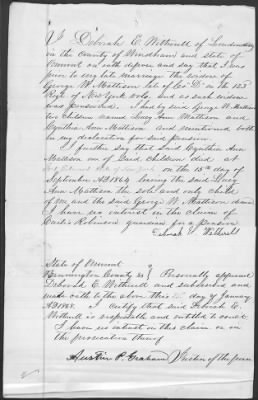 I Deborah E. Witherill of
in the county of Windham and state of
Vermont on oath depose and say that I was
prior to my late marriage the widow of
George W. Mattison late of Co "D" in the 123
Regt of New York Vols. and as such widow
was pensioned. I had by said George W. Mattison
two children named Lucy Ann Mattison and
Cynthia Ann Mattison and mentioned both
in my declaration for said pension
I further say that said Cynthia Ann
Mattison one of said children died at
on the 15th day of
September A.D. 1864 leaving the said Lucy
Ann Mattison the sole and only child
of me and the said George W. Mattison
I have no interest in the claim of
Robinson guardian for a pension
Deborah E. Witherill
State of Vermont
Bennington County ss Personally appeared
Deborah E. Witherill and subscribed and
made oath to the above this day of January
A.D. 1868. I certify that said Deborah E.
Witherill is respectable and entitled to credit
I have no interest in this claim or in
the prosecution thereof
Austin P. Graham Justice of the peace